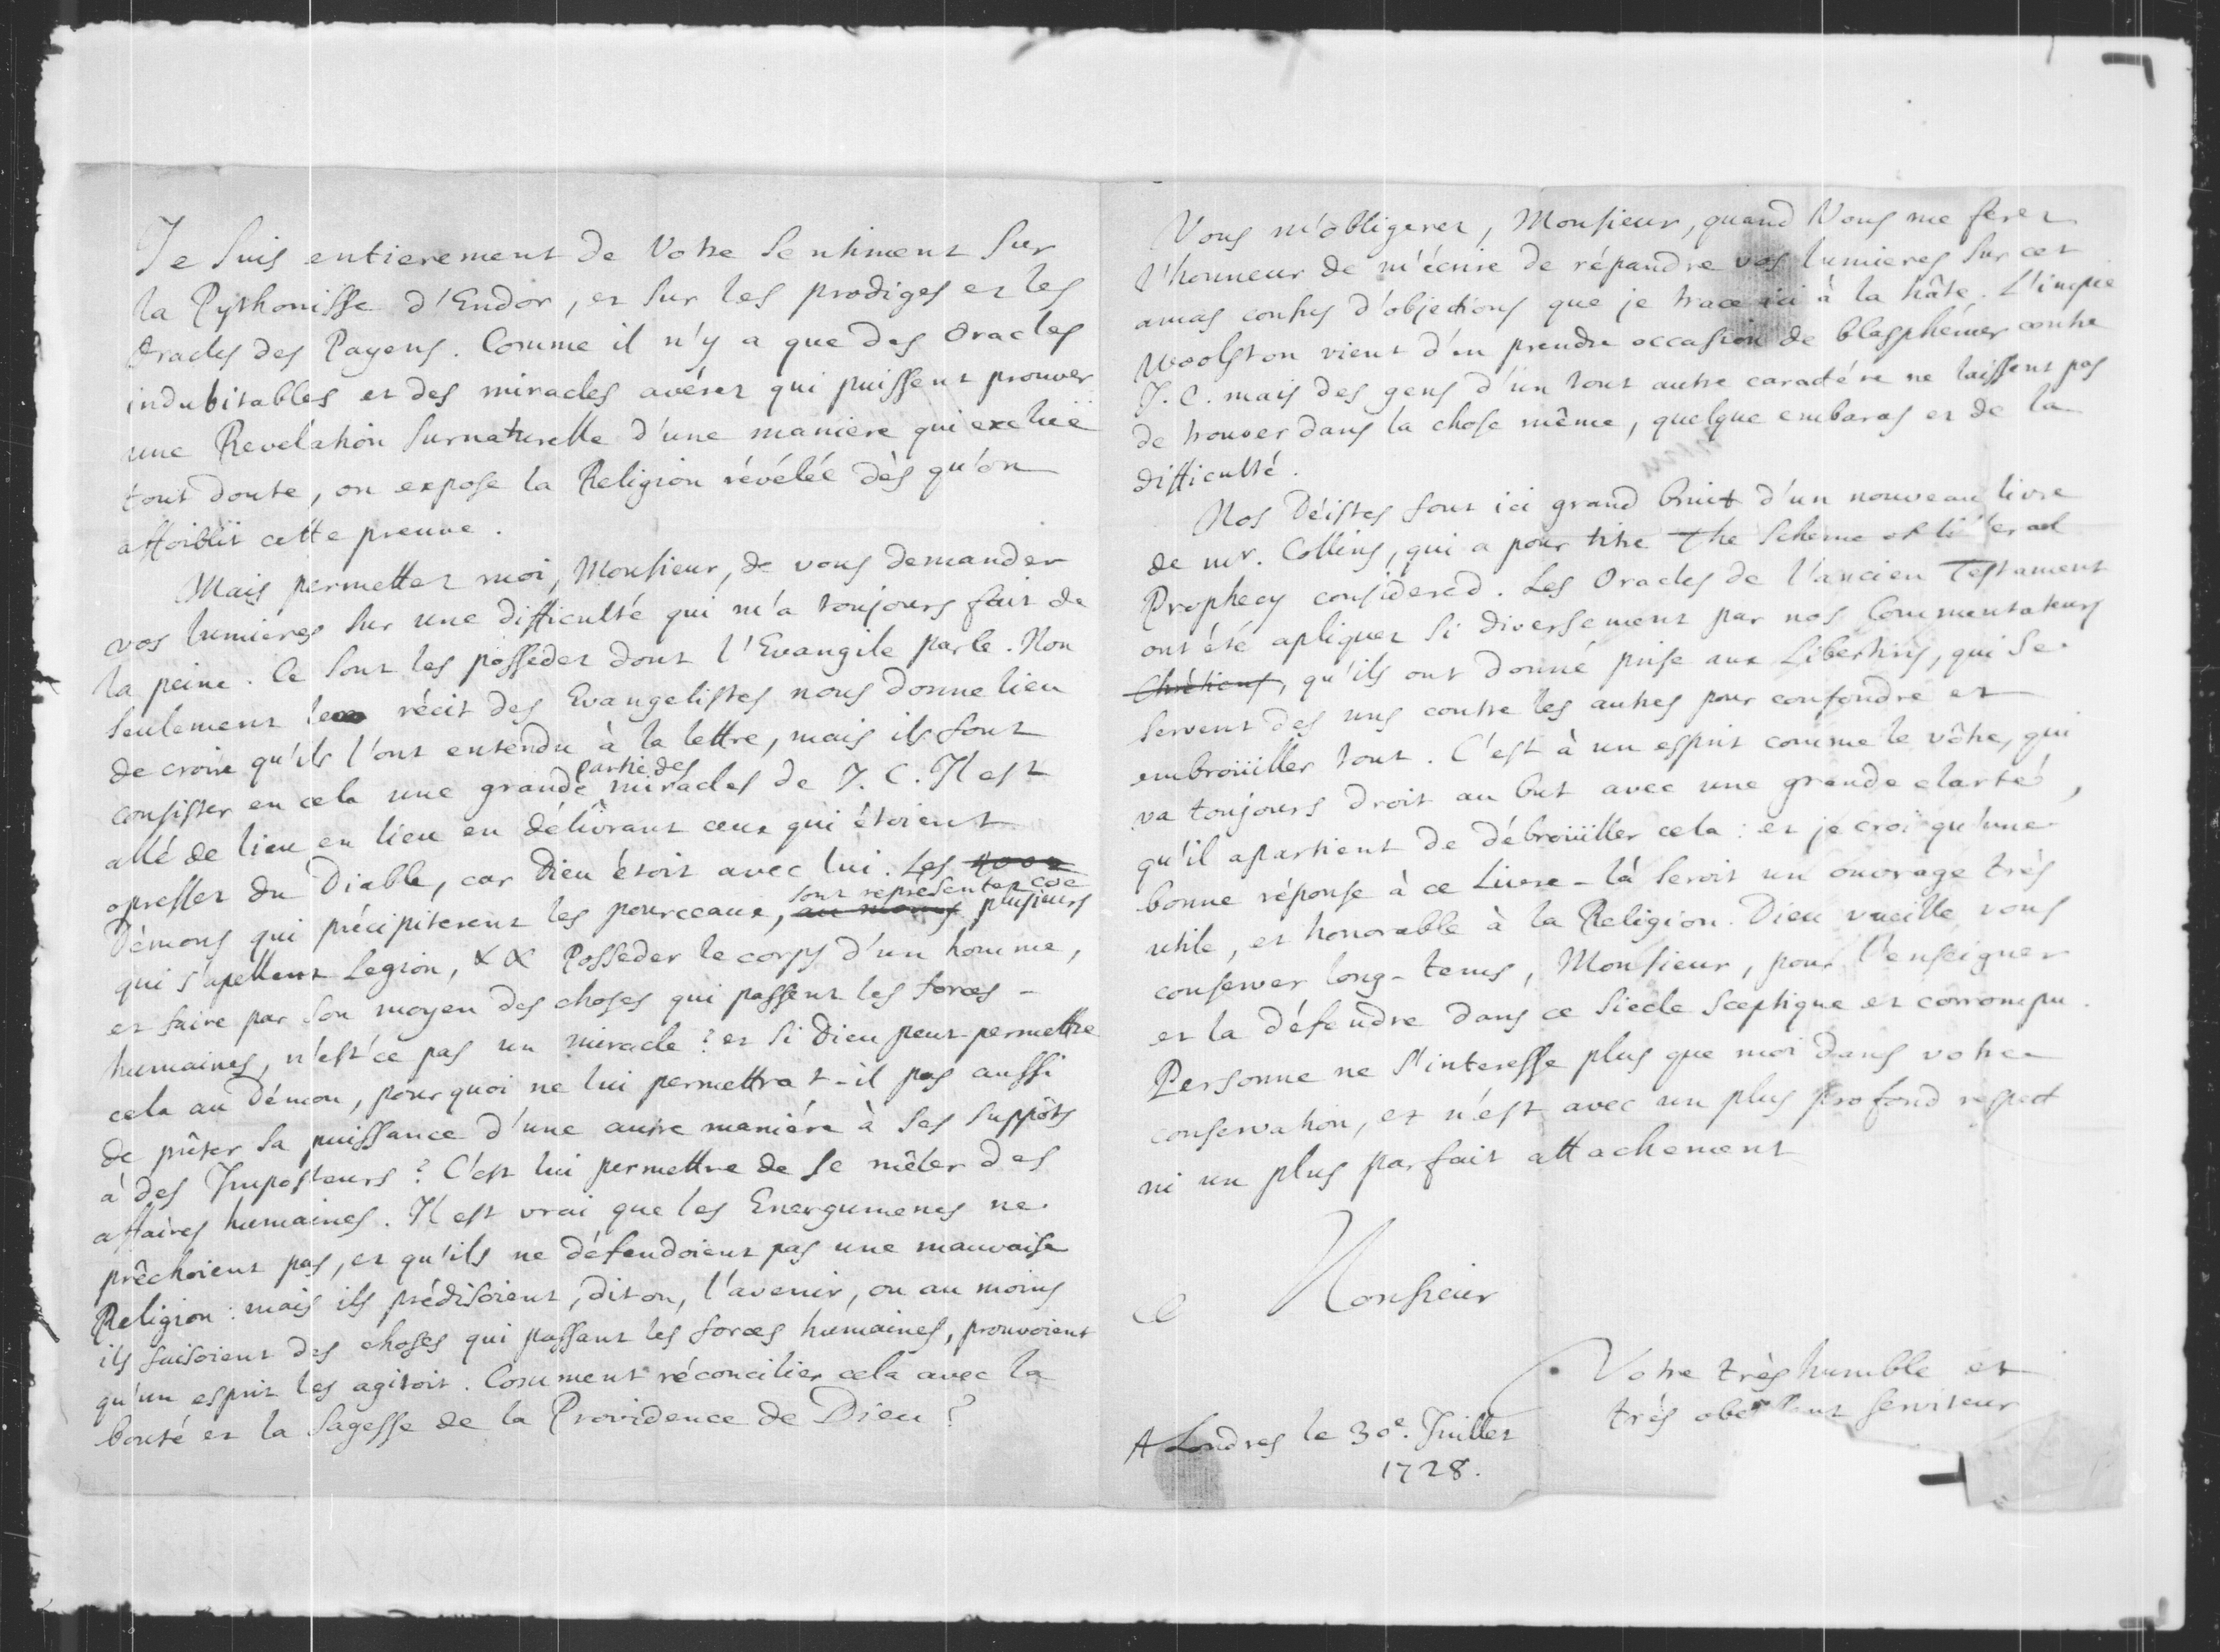 Je suis entierement de Votre Sentiment sur
la Pythonisse d'Endor, et sur les prodiges et les
oracles des Payens. Comme il n'y a que des oracles
indubitables et des miracles avérez qui puissent prouver
une Revelation surnaturelle d'une maniere qui excluë
tout doute, on expose la Religion révélée dès qu'on
affoiblit cette preuve.
Mais permettez moi, Monsieur, de vous demander
vos lumieres sur une difficulté qui m'a toujours fait de
la peine. Ce sont les possedez dont l'Evangile parle. Non
seulement le récit des Evangelistes nous donne lieu
de croire qu'ils l'ont entendu à la lettre, mais ils font
consister en cela une grande partie des miracles de J. C. Il est
allé de lieu en lieu en délivrant ceux qui étoient
opressez du Diable, car Dieu étoit avec lui. Les
Démons qui précipiterent les pourceaux, au moins sont representez coe plusieurs
qui s'apellent Legion, Posseder le corps d'un homme,
et faire par son moyen des choses qui passent les forces
humaines, n'est'ce pas un miracle? et si Dieu peut permettre
cela au Démon, pourquoi ne lui permettra t-il pas aussi
de prêter sa puissance d'une autre maniére à ses suppôts
à des Imposteurs? C'est lui permettre de se mêler des
affaires humaines. Il est vrai que les Energumenes ne
prêchoient pas, et qu'ils ne défendoient pas une mauvaise
Religion: mais ils prédisoient, dit on, l'avenir, ou au moins
ils faisoient des choses qui passant les forces humaines, prouvoient
qu'un esprit les agitoit. Comment réconcilier cela avec la
bonté et la sagesse de la Providence de Dieu?
Vous m'obligerez, Monsieur, quand Vous me ferez
l'honneur de m'écrire de répandre vos lumieres sur cet
amas confus d'objections que je trace ici à la hâte. L'impie
Woolston vient d'en prendre occasion de blasphémer contre
J. C. mais des gens d'un tout autre caractére ne laissent pas
de trouver dans la chose même, quelque embaras et de la
difficulté.
Nos Déistes font ici grand bruit d'un nouveau livre
de mr. Collins, qui a pour titre The Scheme of literal
Prophecy considered. Les Oracles de l'ancien Testament
ont été apliquez si diversement par nos Commentateurs
Chrétiens, qu'ils ont donné prise aux Libertins, qui se
servent des uns contre les autres pour confondre et
embroüiller tout. C'est à un esprit comme le vôtre, qui
va toujours droit au but avec une grande clarté,
qu'il apartient de débroüiller cela: et je croi qu'une
bonne réponse à ce Livre-là seroit un ouvrage très
utile, et honorable à la Religion. Dieu vueille vous
conserver long-tems, Monsieur, pour l'enseigner
et la défendre dans ce siecle sceptique et corrompu.
Personne ne s'interesse plus que moi dans votre
conservation, et n'est avec un plus profond respect
ni un plus parfait attachement
Monsieur
Votre très humble et
très obeissant serviteur
A Londres le 30e. Juillet
1728.